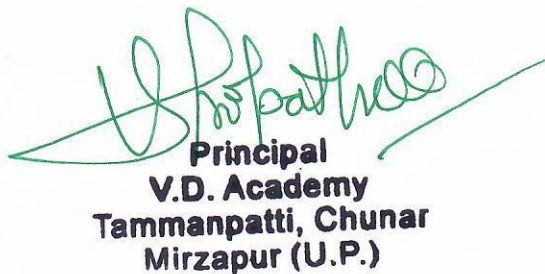 Principal
V.D. Academy
Tammanpatti, Chunar
Mirzapur (U.P.)